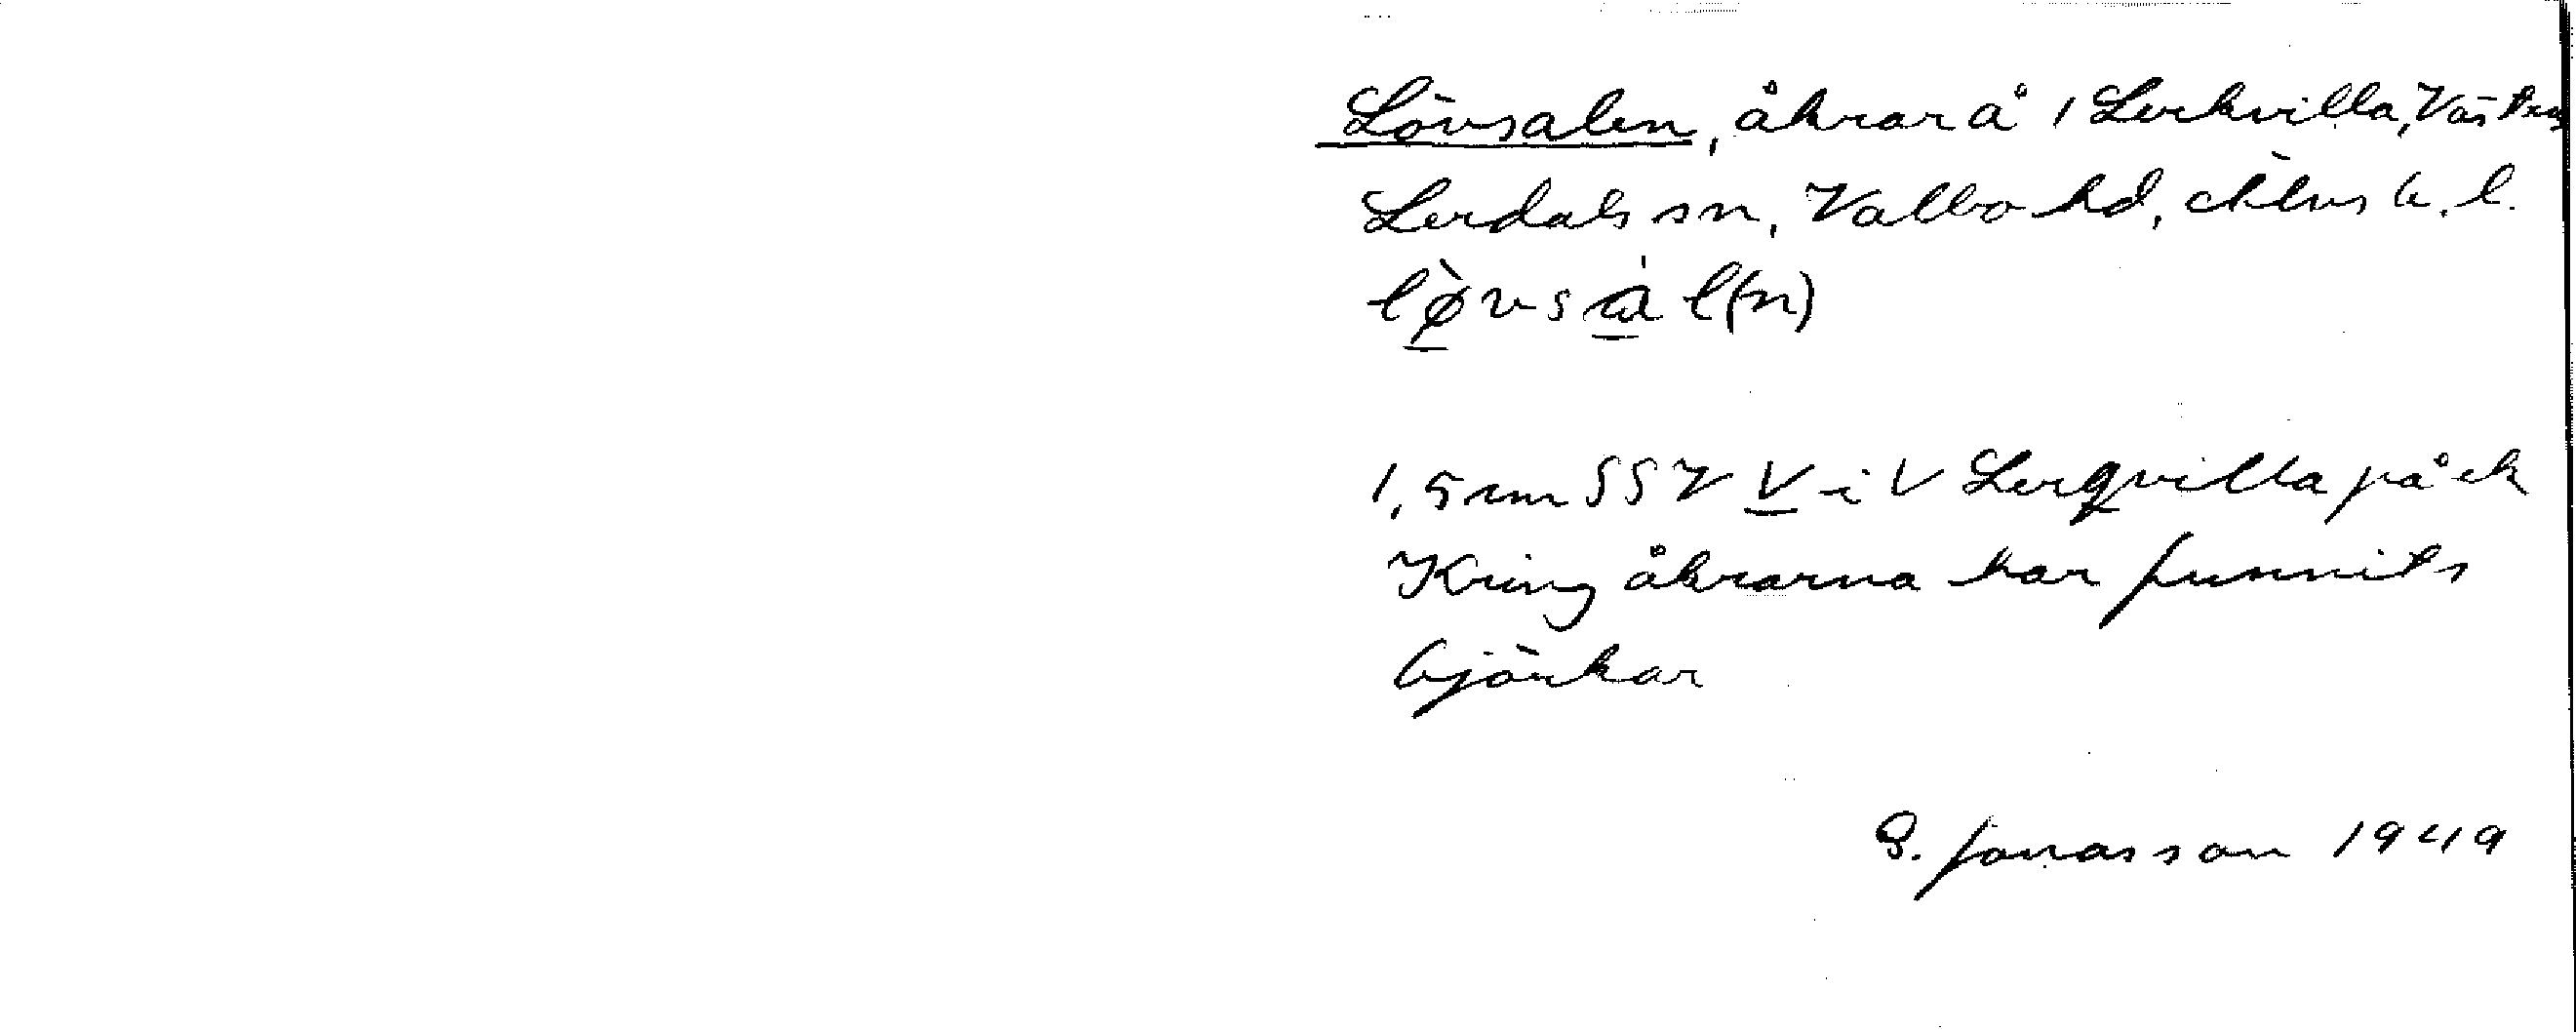 Lövsalen, åkrar å 1 Lerkvilla, Västra
Lerdals sn, Valbo hd, Älvsb. l.
lø̀vsàl(n)
1,5 cm SSV V i V Lerqvilla på ek
Kring åkrarna har funnits
björkar
G. Jonasson 1949